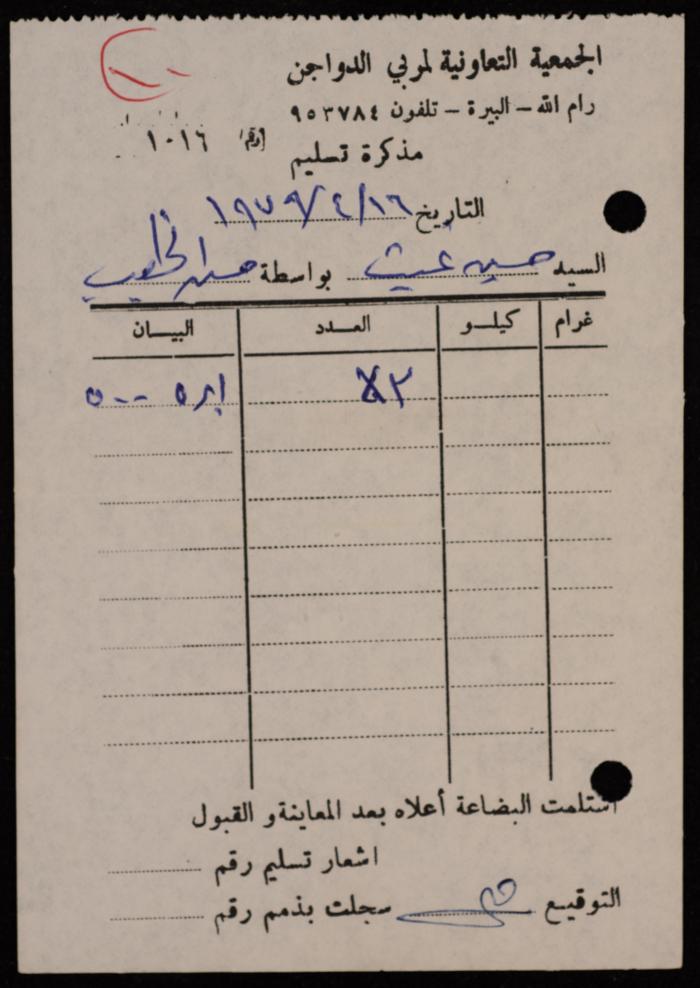 الجمعية التعاونية لمربي الدواجن
رام الله – البيرة – تلفون ٩٥٣٧٨٤
مذكرة تسليم رقم ١٠١٦
التاريخ ١٩٧٩/٤/١٦
السيد حسين غيث بواسطة الخطيب
غرام كيلو العدد البيان
٥٠٠
استلمت البضاعة أعلاه بعد المعاينة و القبول
اشعار تسليم رقم
التوقيع سجلت بذمم رقم